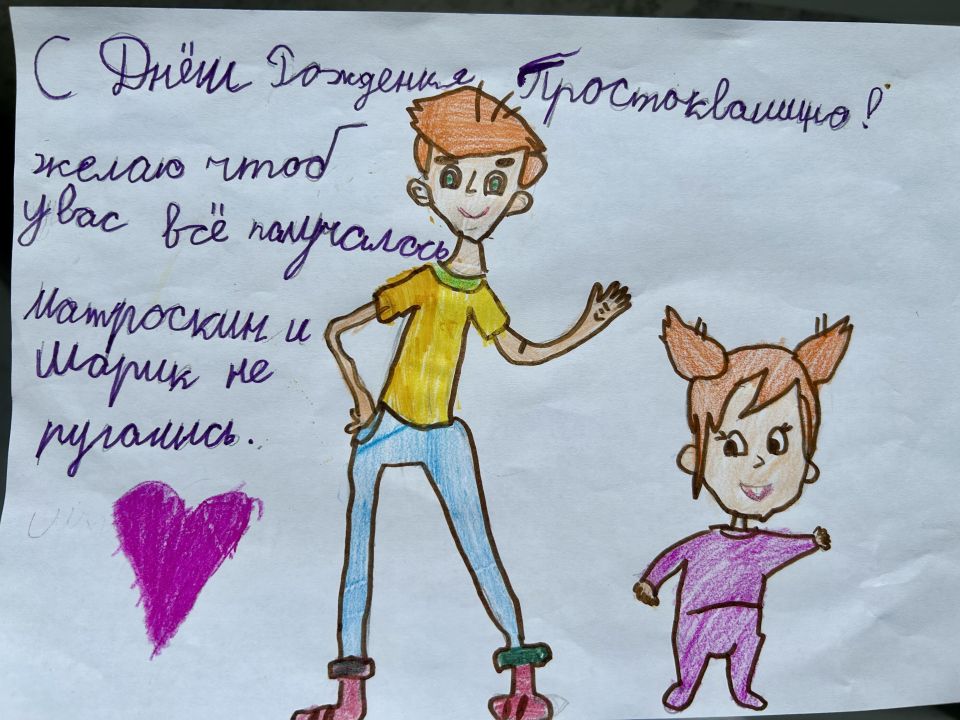 С Днём Рождения Простоквашино!
желаю чтоб
у вас всё получалось
Матроскин и
Шарик не
ругались.